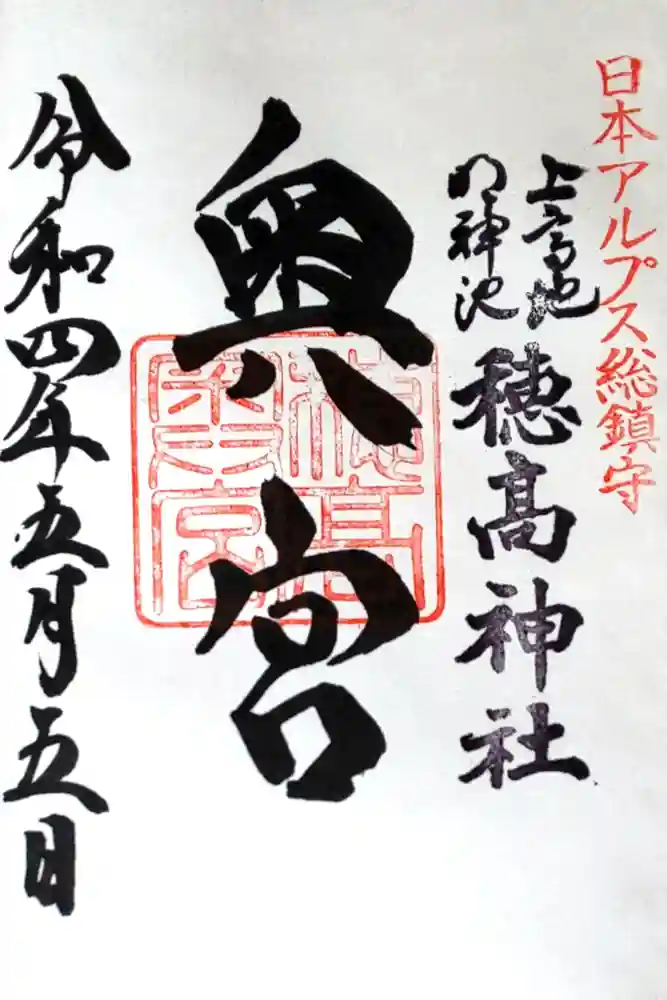 日本アルプス総鎮守
上高地
明神池
穂髙神社
奥宮
穂高
奥宮
令和四年五月五日